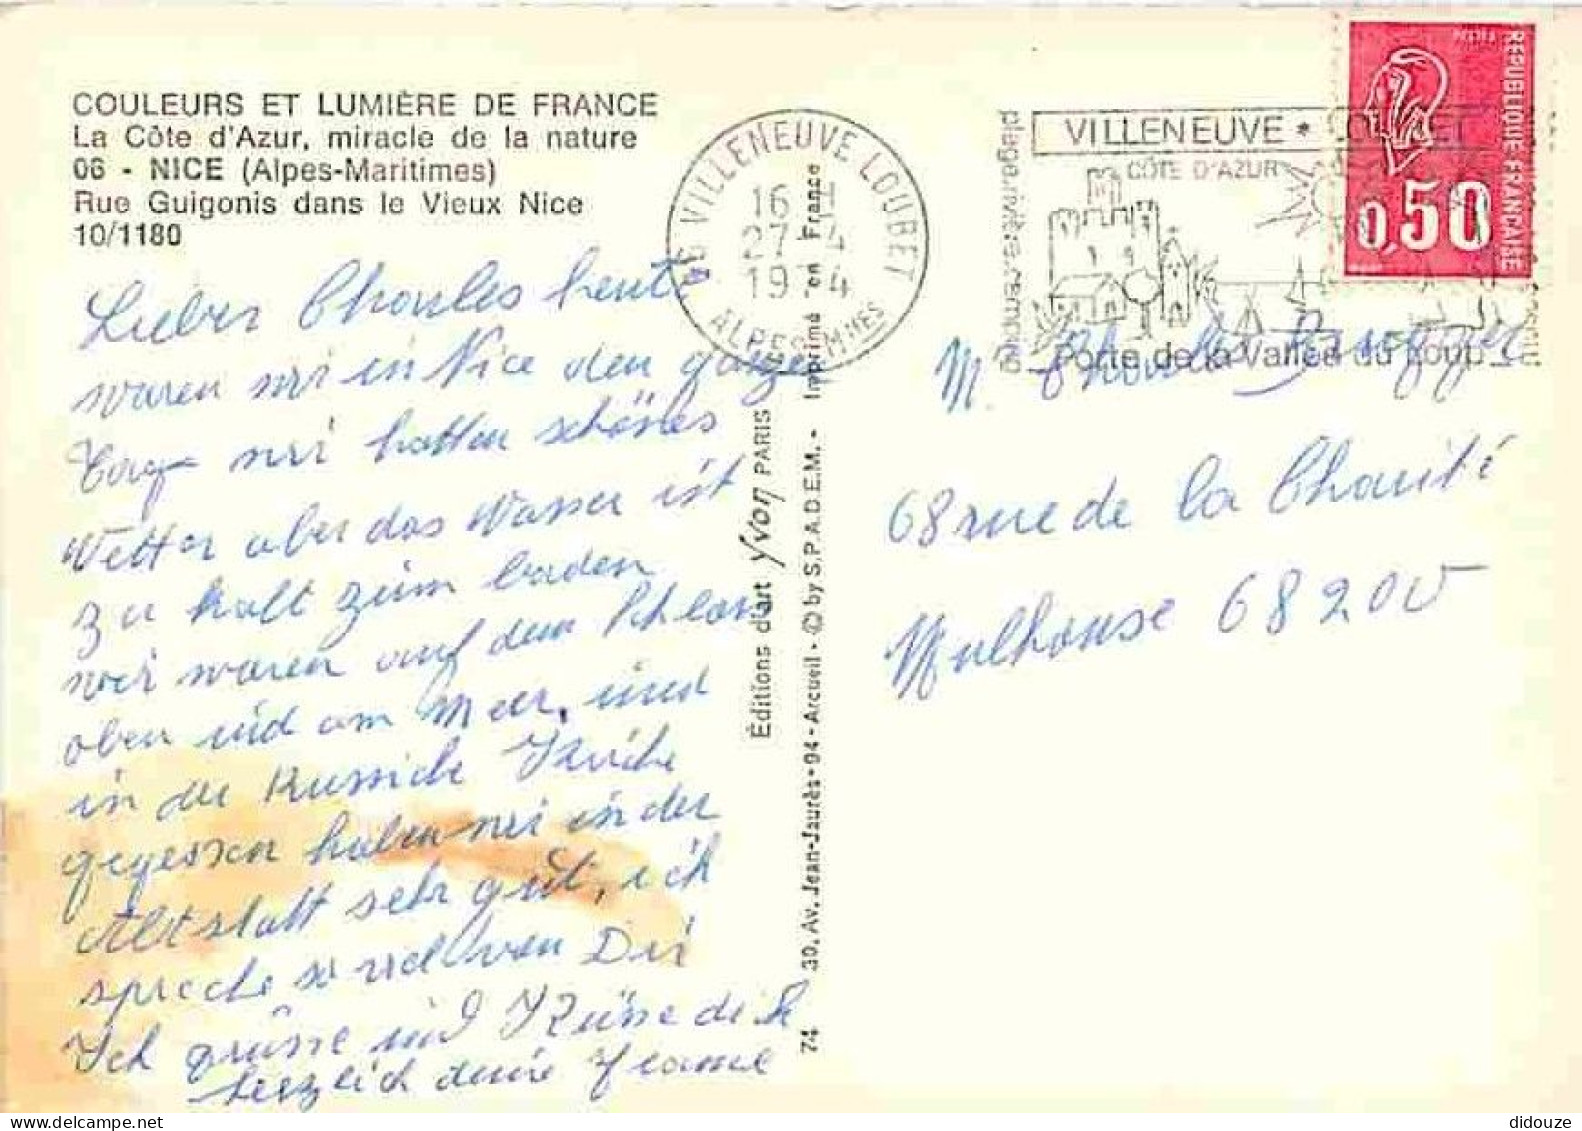 COULEURS ET LUMIÈRE DE FRANCE
La Côte d'Azur, miracle de la nature
06 - NICE (Alpes-Maritimes)
Rue Guigonis dans le Vieux Nice
10/1180
Lieber Charles heute
waren wir in Nice den ganzen
Tag wir hatten schönes
Wetter aber das Wasser ist
zu kalt zum baden
wir waren auf dem Schloss
oben und am Meer, und
in der Russiche Kirche
gegessen haben wir in der
Altstatt sehr gut, ich
spreche so viel von Dir
Ich grüsse und Küsse dich
herzlich deine Jeanne
Éditions d'art Yvon PARIS
74 30, Av. Jean-Jaurès-94 - Arcueil - © by S.P.A.D.E.M. - Imprimé en France
06 VILLENEUVE LOUBET
16 H
27-4
19 4
ALPES-MMES
plage.rivière.camping
VILLENEUVE * LOUBET
CÔTE D'AZUR
Porte de la Vallée du Loup
REPUBLIQUE FRANÇAISE
0,50
M. Charles
68 rue de la Charité
Mulhouse 68200
didouze